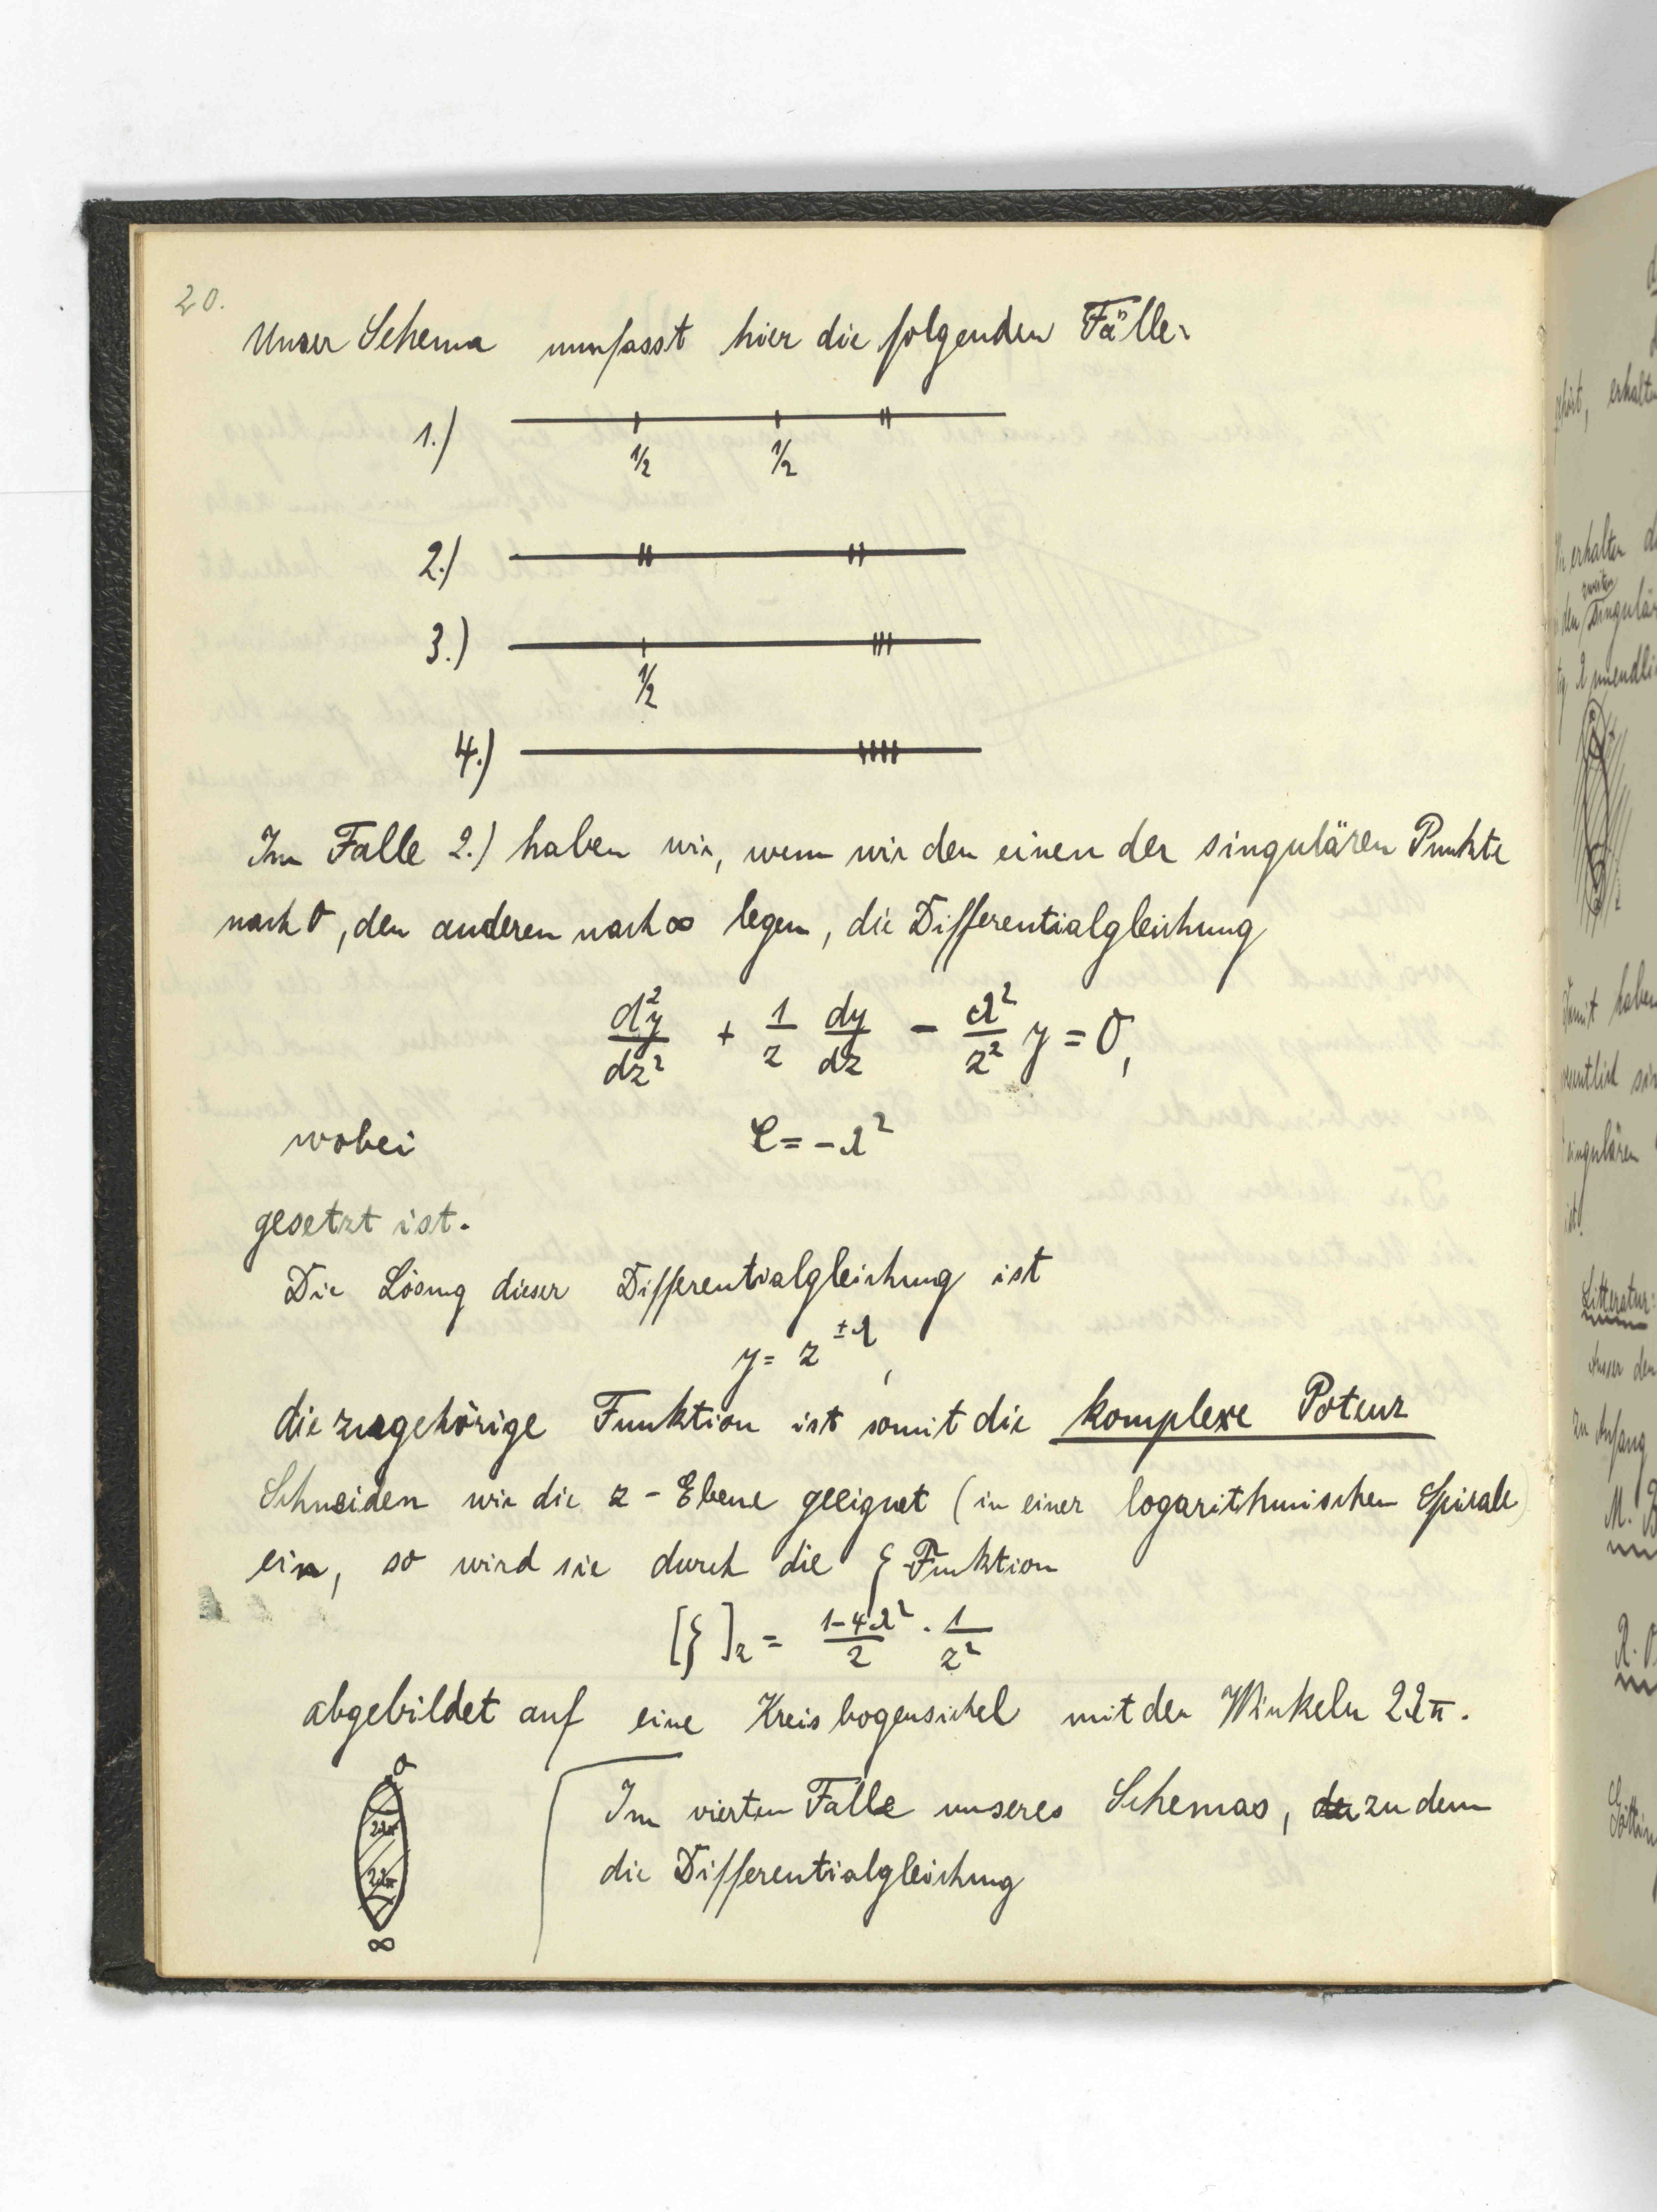 20.
Unser Schema umfasst hier die folgenden Fälle:
1.)
1/2 1/2
2.)
3.)
1/2
4.)
Im Falle 2.) haben wir, wenn wir den einen der singulären Punkte
nach 0, den anderen nach ∞ legen, die Differentialgleichung
d²y/dz² + 1/z dy/dz - λ²/z² y = 0,
wobei C = -λ²
gesetzt ist.
Die Lösung dieser Differentialgleichung ist
y = z^±λ,
die zugehörige Funktion ist somit die komplexe Potenz
Schneiden wir die z-Ebene geeignet (in einer logarithmischen Spirale)
ein, so wird sie durch die ζ-Funktion
[ζ]z = 1-4λ²/2 · 1/z²
abgebildet auf eine Kreisbogensichel mit den Winkeln 2λπ.
0
2λπ
2λπ
∞
Im vierten Falle unseres Schemas, zu dem
die Differentialgleichung
erhalten
zweiten
singulär
unendli
haben
singulären
ist.
Litteratur:
Ausser den
zu Anfang